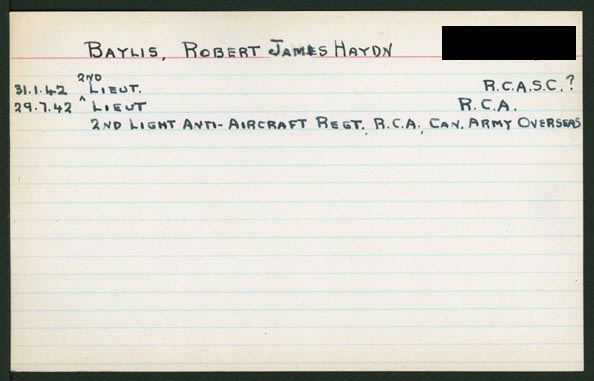 BAYLIS, ROBERT JAMES HAYDN
31.1.42 2ND LIEUT. R.C.A.S.C.?
29.7.42 ^ LIEUT R.C.A.
2ND LIGHT ANTI-AIRCRAFT REGT. R.C.A., CAN. ARMY OVERSEAS